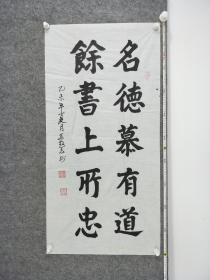 名德慕有道
餘書上所忠
乙未年